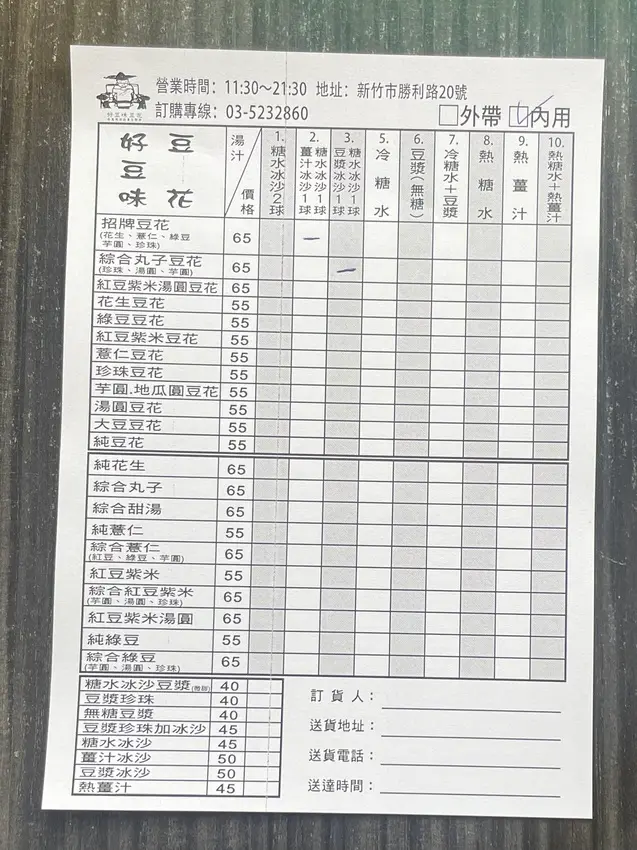 營業時間：11:30～21:30 地址：新竹市勝利路20號
訂購專線：03-5232860
□外帶 ☑內用
好豆味豆花
湯汁 價格
1. 糖水冰沙2球
2. 糖水冰沙1球 薑汁冰沙1球
3. 糖水冰沙1球 豆漿冰沙1球
5. 冷糖水
6. 豆漿(無糖)
7. 冷糖水+豆漿
8. 熱糖水
9. 熱薑汁
10. 熱糖水+熱薑汁
招牌豆花 65 —
(花生、薏仁、綠豆
芋圓、珍珠)
綜合丸子豆花 65 —
(珍珠、湯圓、芋圓)
紅豆紫米湯圓豆花 65
花生豆花 55
綠豆豆花 55
紅豆紫米豆花 55
薏仁豆花 55
珍珠豆花 55
芋圓.地瓜圓豆花 55
湯圓豆花 55
大豆豆花 55
純豆花 55
純花生 65
綜合丸子 65
綜合甜湯 65
純薏仁 55
綜合薏仁 65
(紅豆、綠豆、芋圓)
紅豆紫米 55
綜合紅豆紫米 65
(芋圓、湯圓、珍珠)
紅豆紫米湯圓 65
純綠豆 55
綜合綠豆 65
(芋圓、湯圓、珍珠)
糖水冰沙豆漿 40
豆漿珍珠 40
無糖豆漿 40
豆漿珍珠加冰沙 45
糖水冰沙 45
薑汁冰沙 50
豆漿冰沙 50
熱薑汁 45
訂貨人：
送貨地址：
送貨電話：
送達時間：